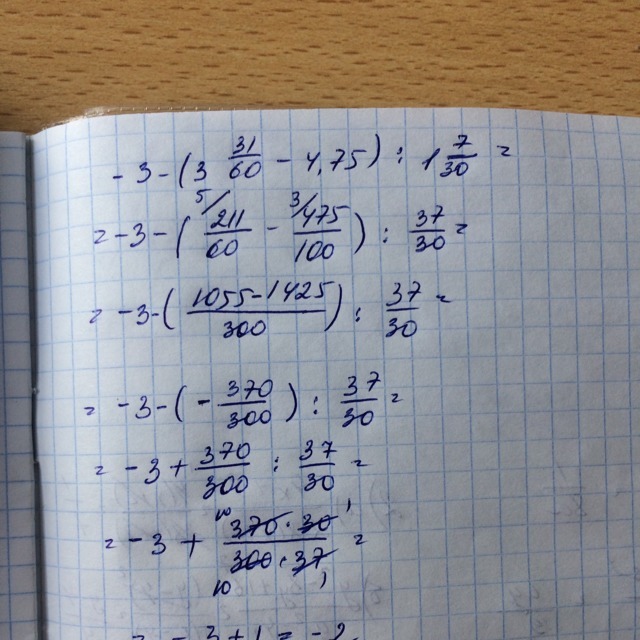 -3-(3 31/60 - 4,75) : 1 7/30 =
= -3-( 5/ 211/60 - 3/ 475/100 ) : 37/30 =
= -3-( (1055-1425)/300 ) : 37/30 =
= -3-( - 370/300 ) : 37/30 =
= -3 + 370/300 : 37/30 =
= -3 + (370 · 30)/(300 · 37) = 10 1 10 1
= -3+1 = -2